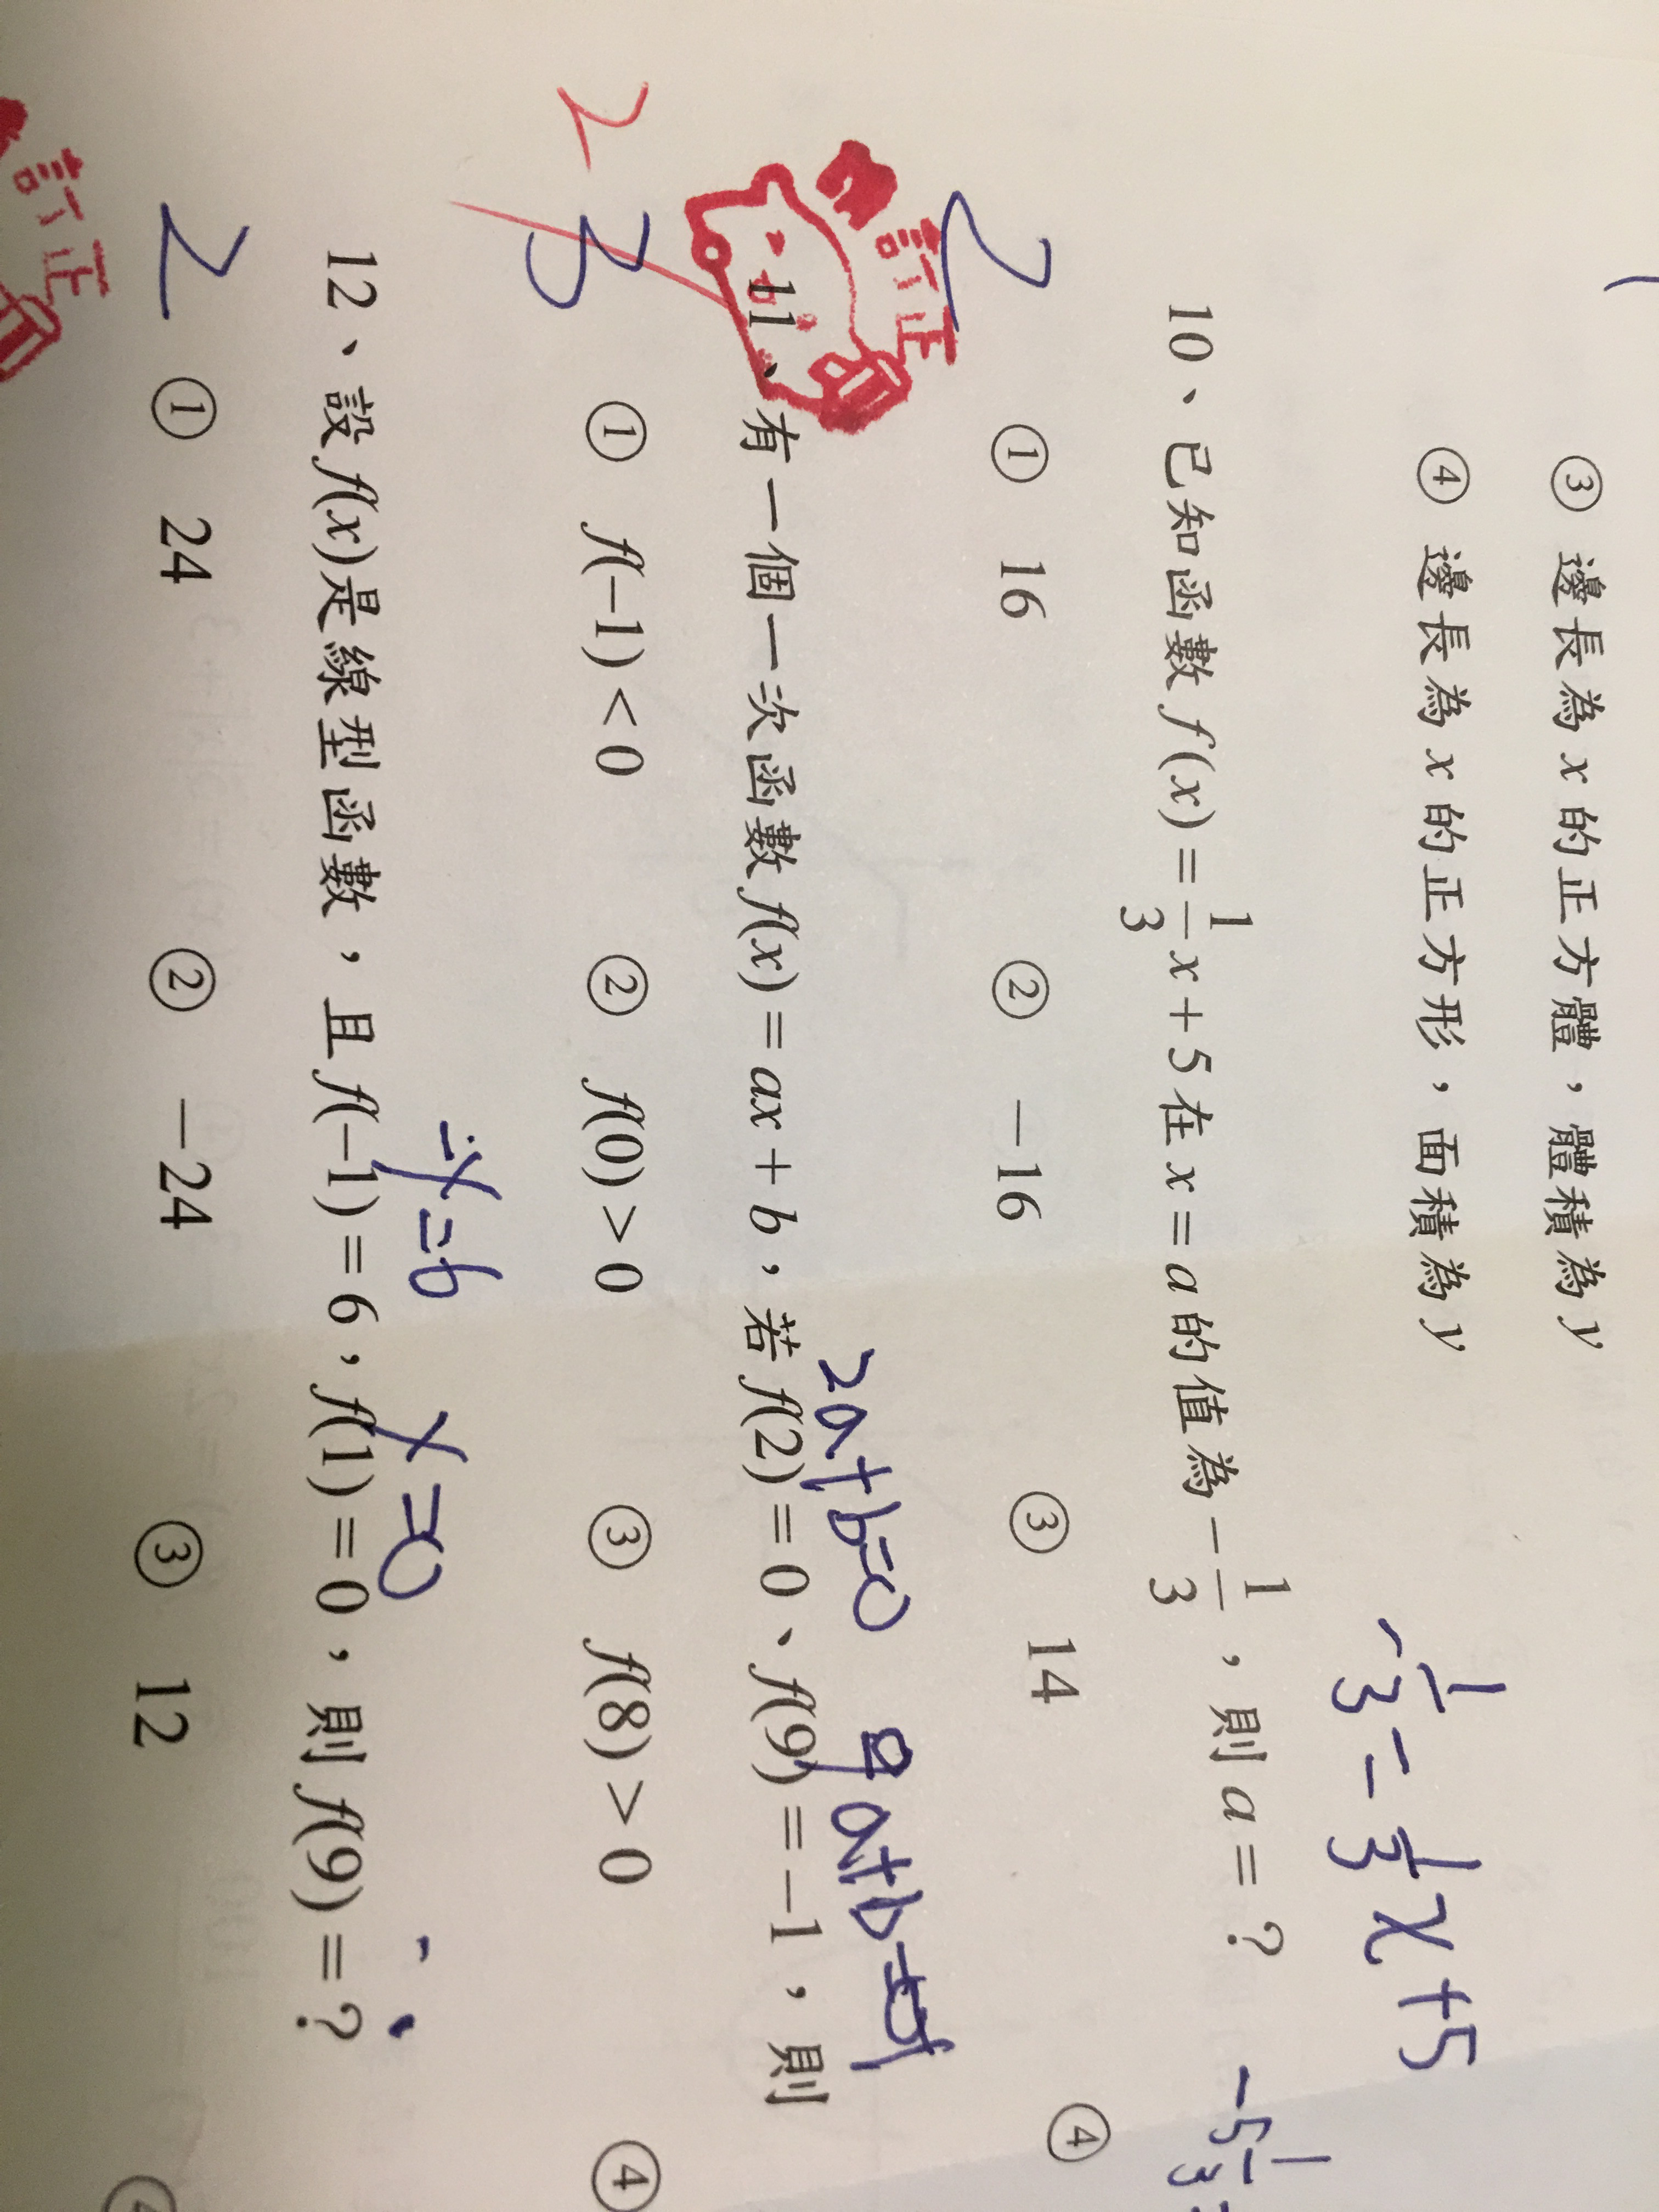 ③ 邊長為 x 的正方體，體積為 y
④ 邊長為 x 的正方形，面積為 y
-1/3 = 1/3 x + 5
2 10、已知函數 f(x) = 1/3 x + 5 在 x = a 的值為 -1/3，則 a = ?
-5 1/3
① 16 ② -16 ③ 14 ④
訂正
2a+b=0 9a+b=-1
2 3 11、有一個一次函數 f(x) = ax + b，若 f(2) = 0、f(9) = -1，則
① f(-1) < 0 ② f(0) > 0 ③ f(8) > 0 ④
-x=6 x=0
2 12、設 f(x) 是線型函數，且 f(-1) = 6，f(1) = 0，則 f(9) = ?
① 24 ② -24 ③ 12
訂正